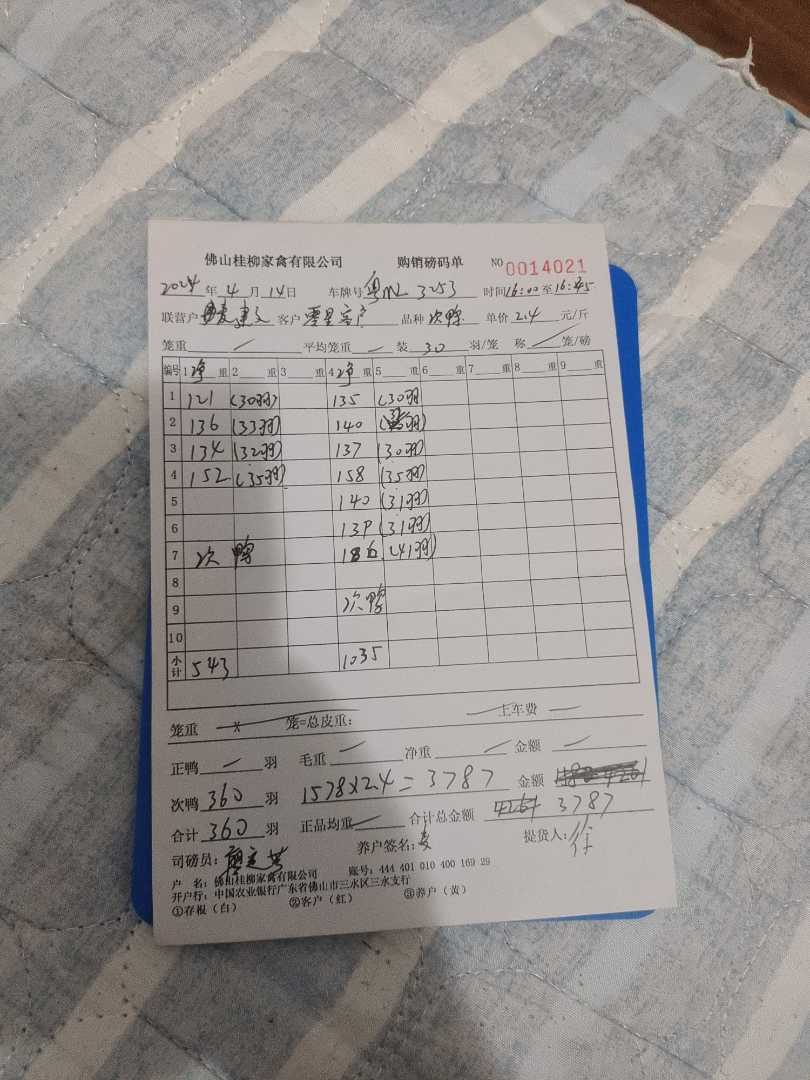 佛山桂柳家禽有限公司 购销磅码单 NO 0014021
2024年4月14日 车牌号 粤 3253 时间16:00至16:45
联营户 客户 零星客户 品种 次鸭 单价 2.4 元/斤
笼重 平均笼重 装 30 羽/笼 称 笼/磅
编号 1净重 2 重 3 重 4净重 5 重 6 重 7 重 8 重 9 重
1 121 (30羽) 135 (30羽)
2 136 (33羽) 140 羽)
3 134 (32羽) 137 (30羽)
4 152 (35羽) 158 (35羽)
5 140 (31羽)
6 139 (31羽)
7 次鸭 186 (41羽)
8
9 次鸭
10
小计 543 1035
笼重 × 笼=总皮重: 上车费
正鸭 羽 毛重 净重 金额
次鸭 360 羽 1578×2.4=3787 金额
合计 360 羽 正品均重 合计总金额 4261 3787
司磅员: 养户签名:麦 提货人:
户 名:佛山桂柳家禽有限公司 账号:444 401 010 400 169 29
开户行:中国农业银行广东省佛山市三水区三水支行
①存根(白) ②客户(红) ③养户(黄)